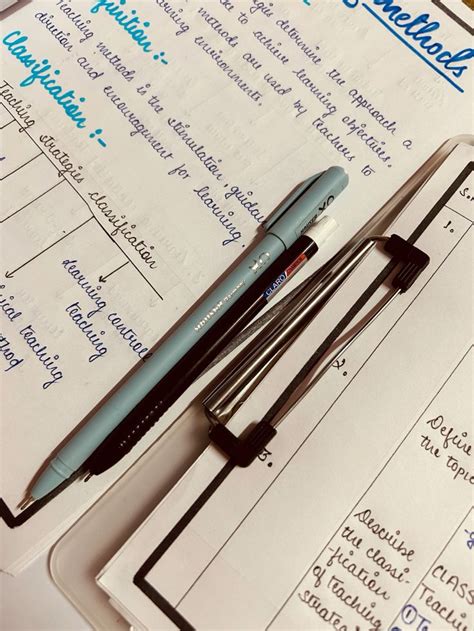 methods
Definition :-
egies determine the approach a
to achieve learning objectives.
methods are used by teachers to
learning environments.
Teaching methods is the stimulation, guidan
direction and encouragement for learning.
Classification :-
Teaching strategies classification
Learning controll
teaching
ical teaching
method
OK
CLARO
S.
1.
2.
3.
Define
the topic
Describe
the classi-
fication
of teaching
strateg
CLASS
Teachin
①